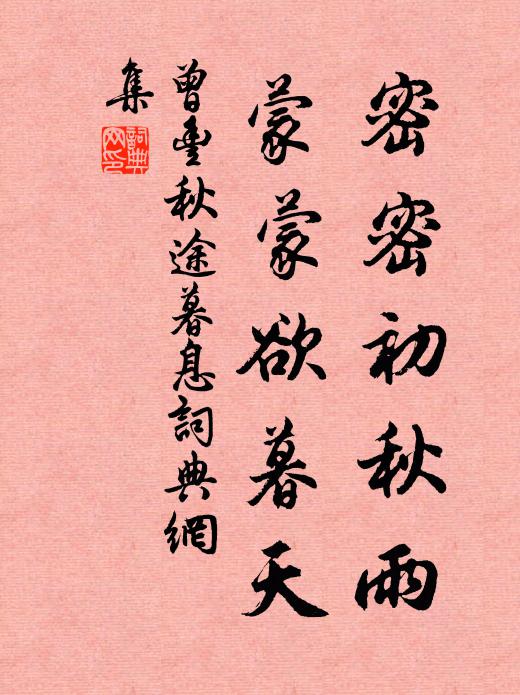 密密初秋雨
蒙蒙欲暮天
曾豐秋途暮息詞典網
集
詞典網印